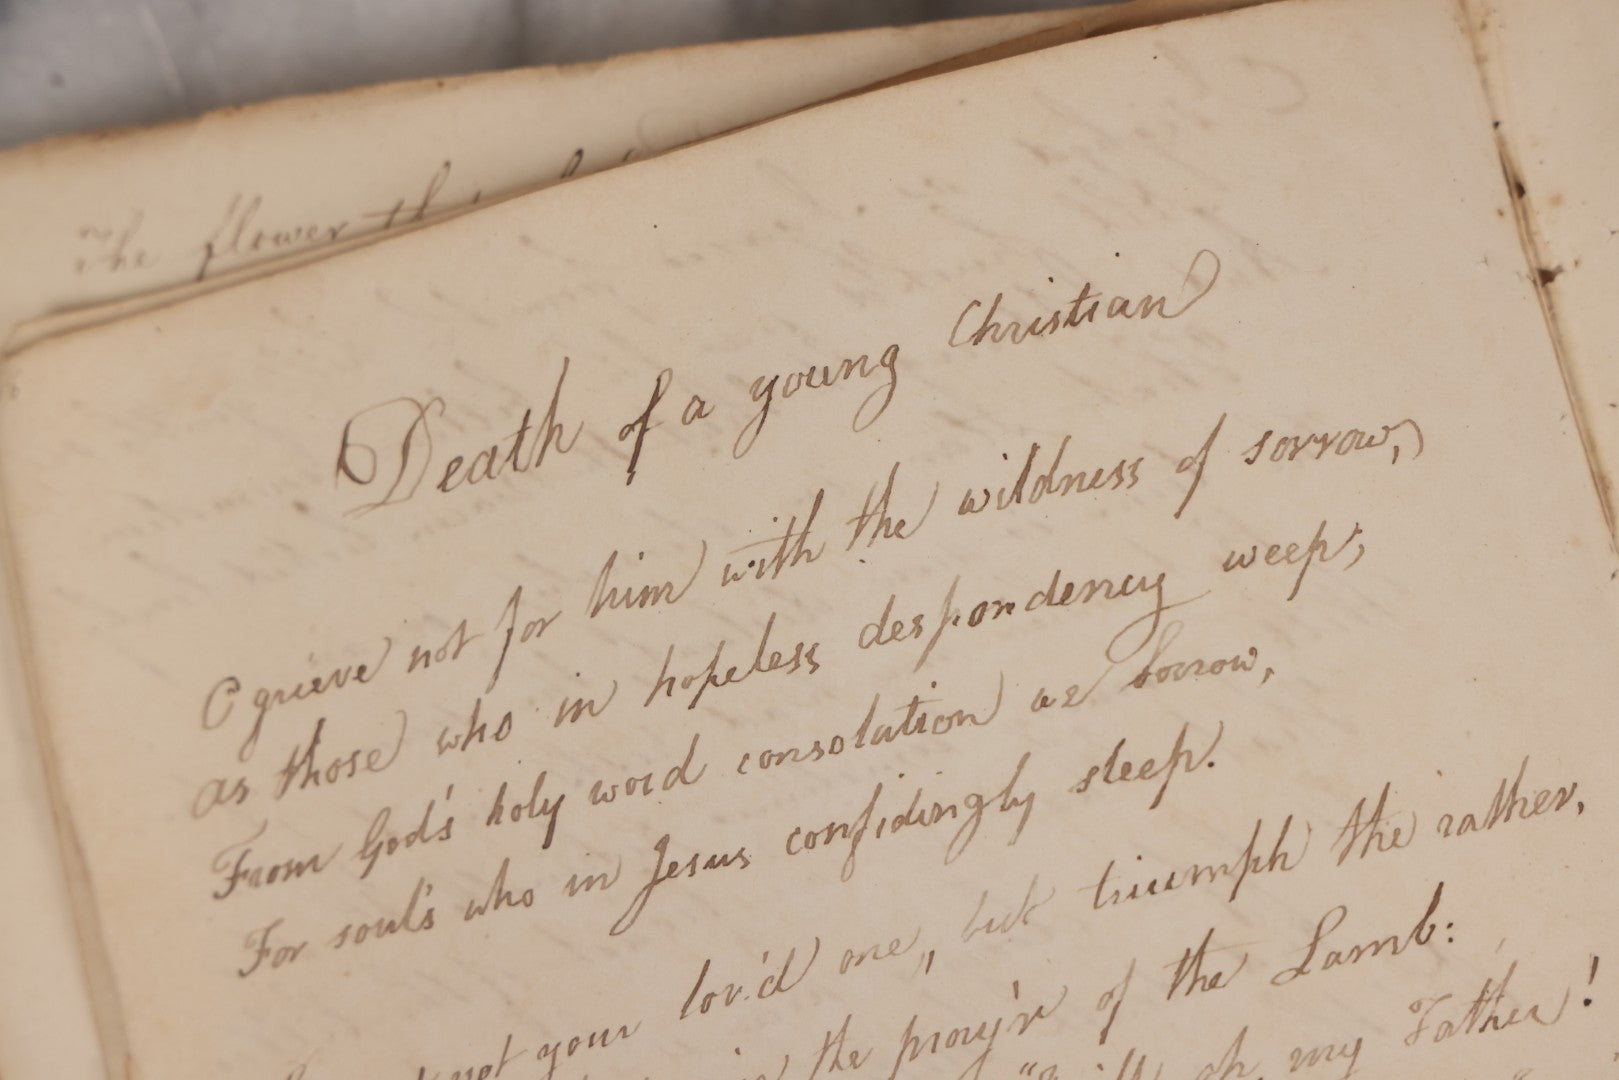 The flower
Death of a young Christian
O grieve not for him with the wildness of sorrow,
as those who in hopeless despondency weep;
From God's holy word consolation we borrow,
For soul's who in Jesus confidingly sleep.
not your lov'd one, but triumph the rather,
the pray'r of the Lamb:
oh, my Father!